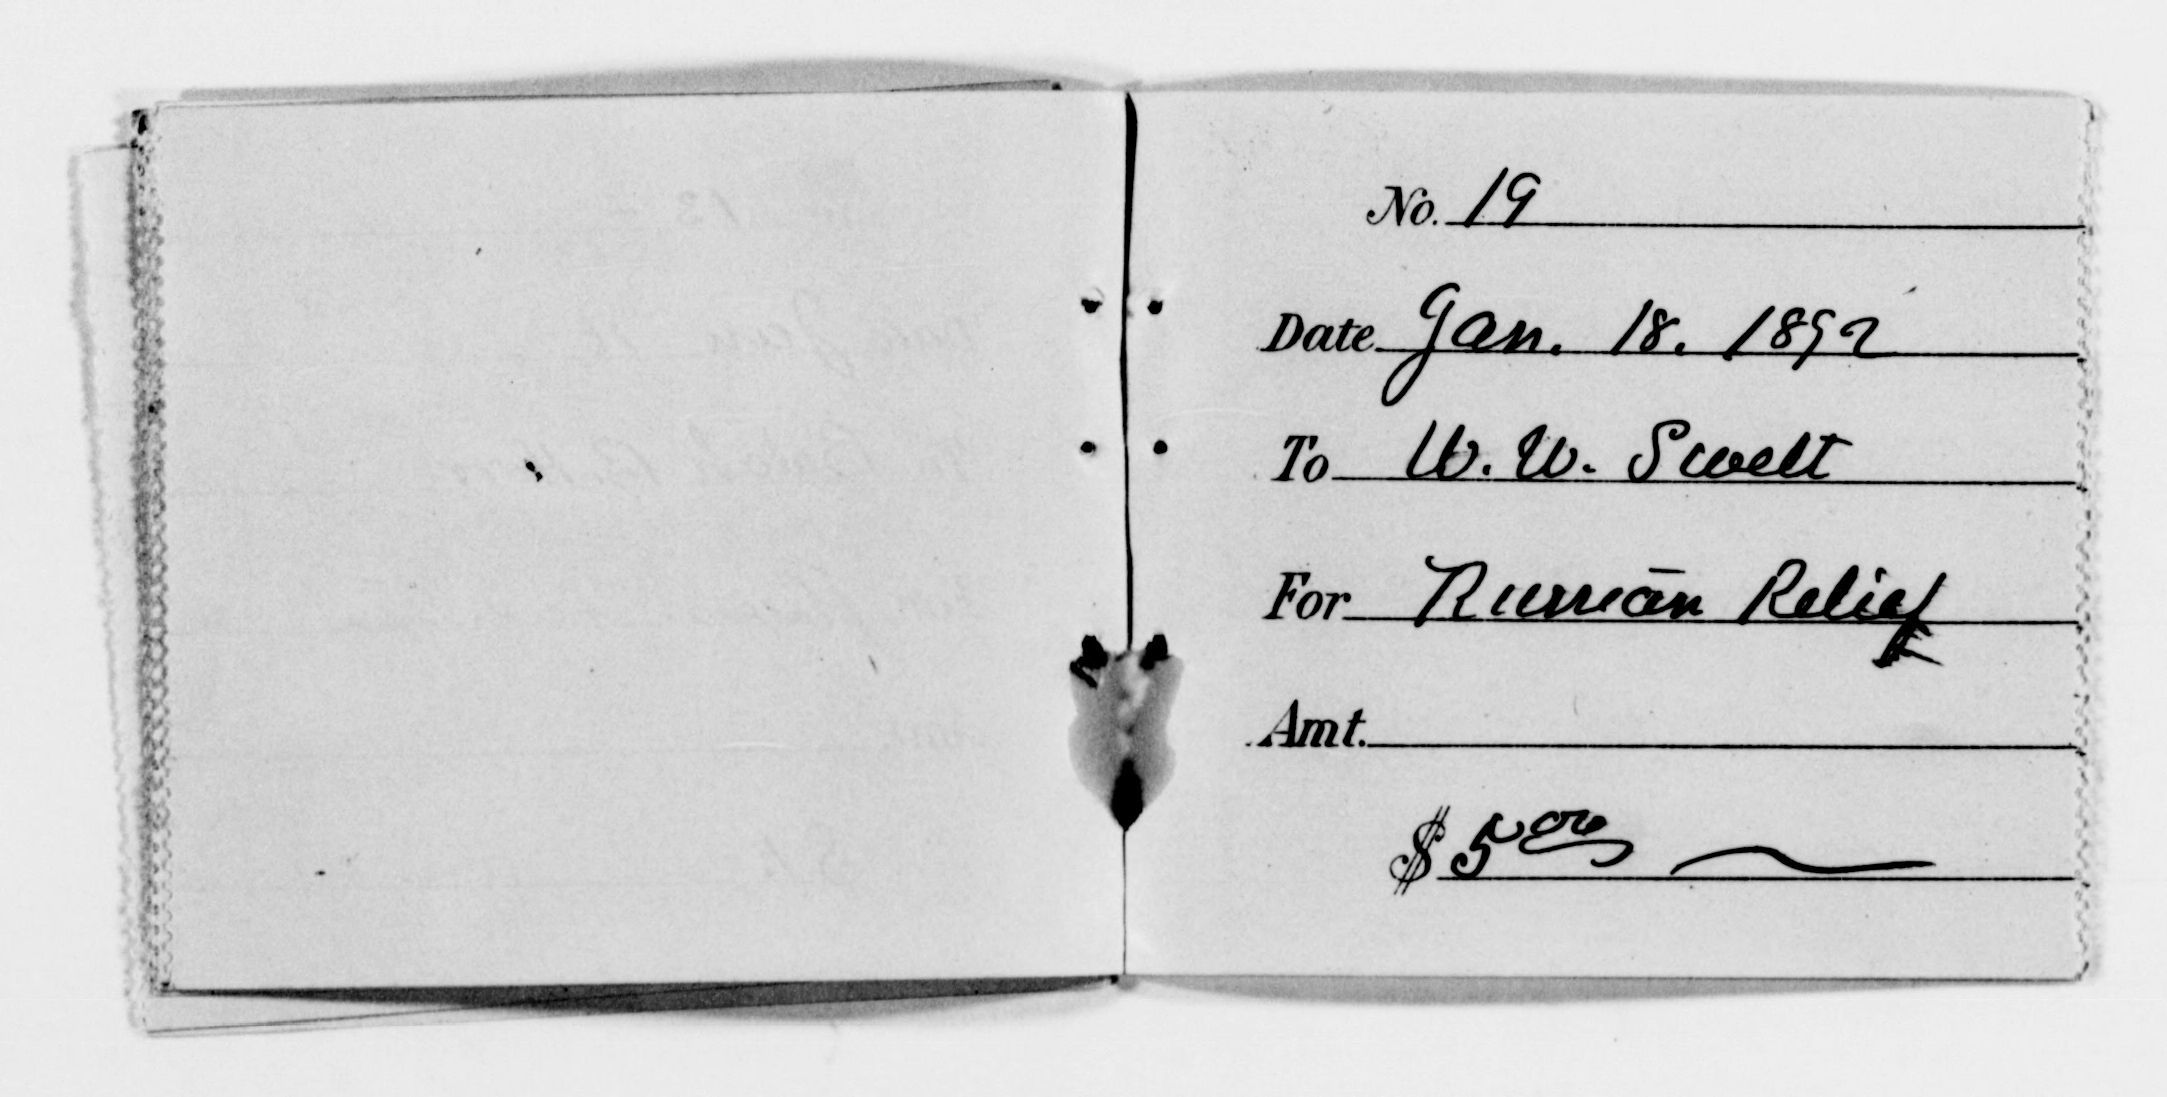 No. 19
Date Jan. 18. 1892
To W. W. Swett
For Russian Relief
Amt.
$ 5 00